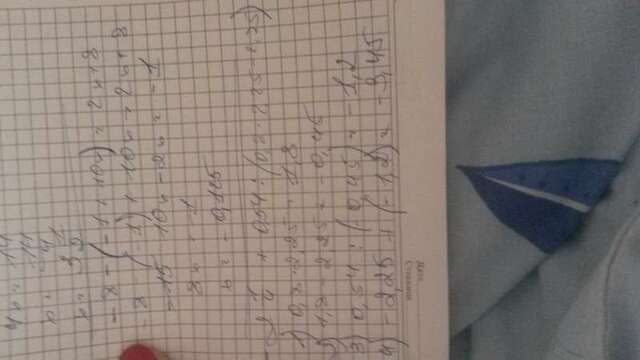 4n = 14
n = 14/4
n = 3 1/2
-8 - (-1 + 10n) = 2n + 8
- 15 10n - 2n = - 1
8n = - 1
n = - 0,125
- 2 1/4 + 0,54 : (0,8 · 2,25 - 2,25)
1) 0,8 · 2,25 = 1,8
2) 1,8 - 2,25 = - 0,45
3) 0,54 : (-0,45) = - 1,2
4) - 2,25 + (- 1,2) = - 3,45